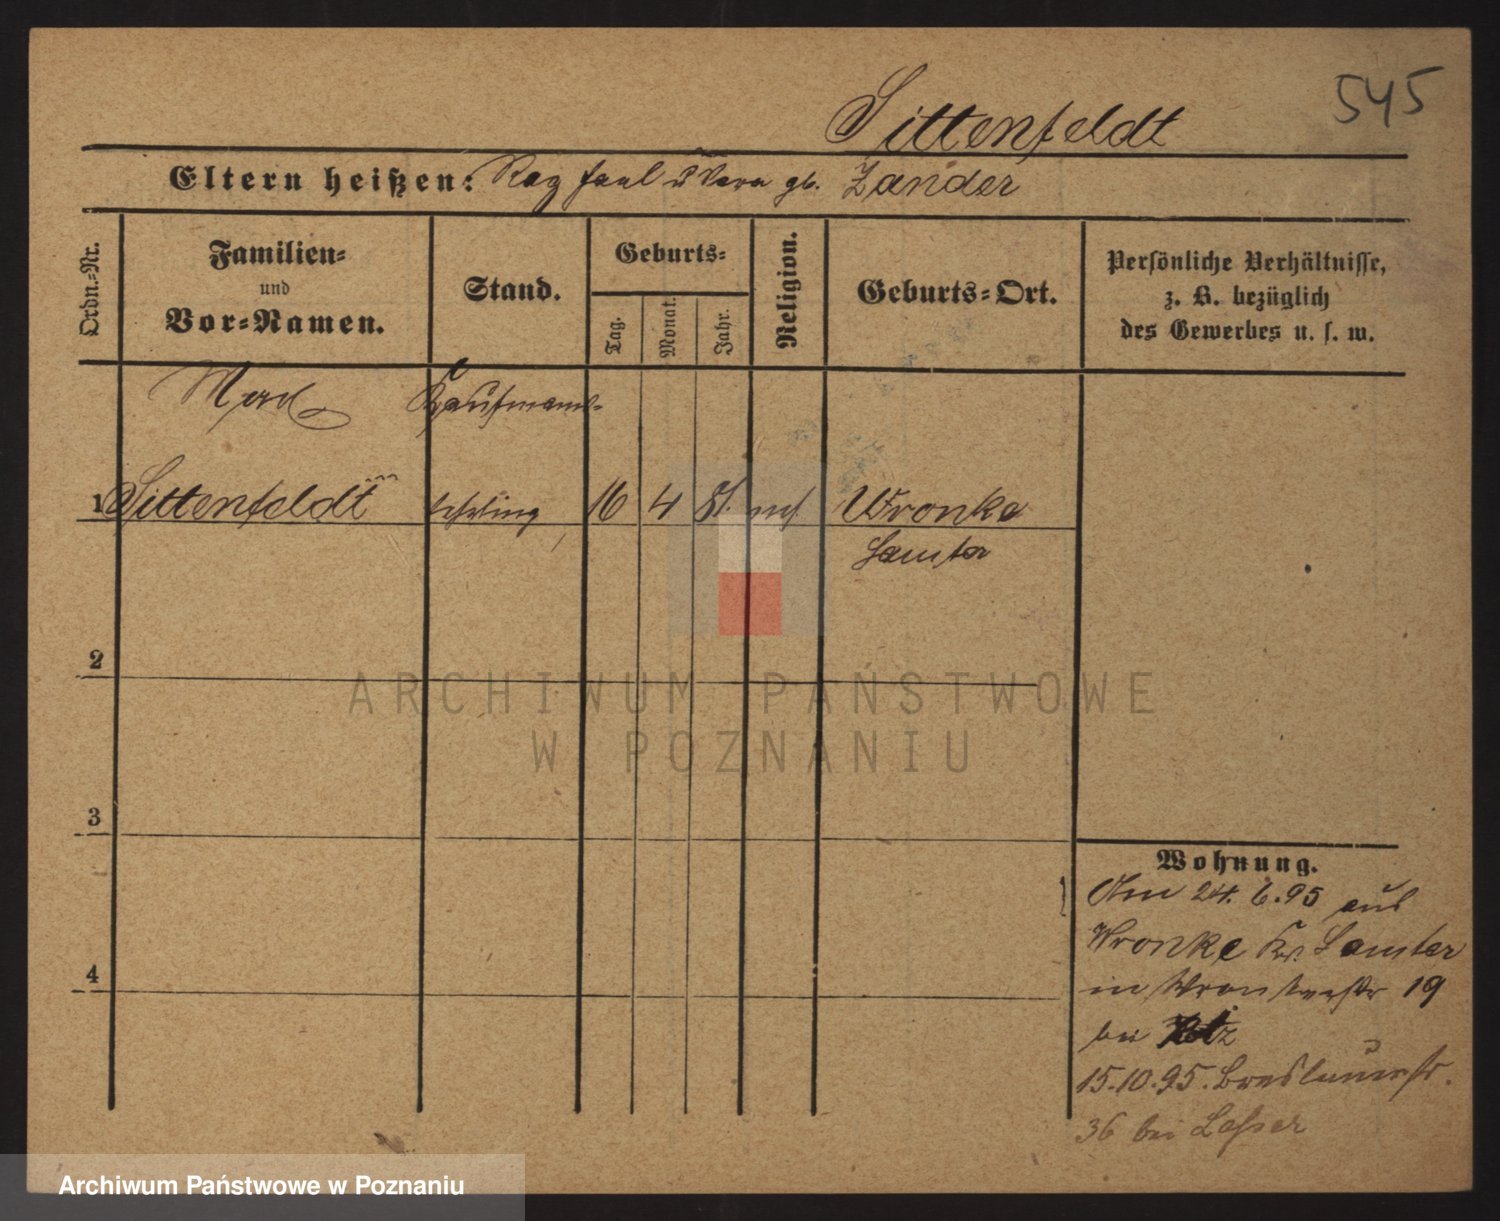 545
Sittenfeldt
Eltern heißen: u gb. Zander
Ordn.-Nr.
Familien-
und
Vor-Namen.
Stand.
Geburts-
Tag.
Monat.
Jahr.
Religion.
Geburts-Ort.
Persönliche Verhältnisse,
z. B. bezüglich
des Gewerbes u. s. w.
Kaufmanns-
1 Sittenfeldt lehrling 16 4 81. Wronke
Samter
2
3
4
ARCHIWUM PAŃSTWOWE
W POZNANIU
Wohnung.
Am 24. 6. 95 aus
Wronke Kr. Samter
in Wronkerstr 19
bei
15.10.95. Breslauerstr.
36 bei Lasser
Archiwum Państwowe w Poznaniu